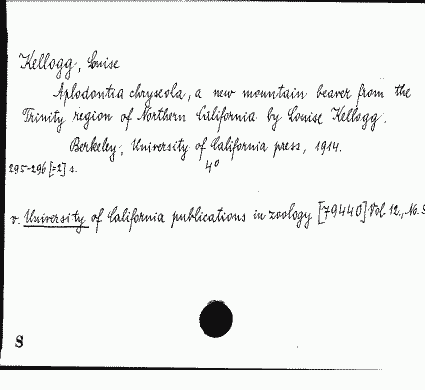 Kellogg, Louise
Aplodontia chryseola, a new mountain beaver from the
Trinity region of Northern California by Louise Kellogg.
Berkeley, University of California press, 1914.
295-296 [=2] s. 4°
v. University of California publications in zoology [79440] Vol 12., No.
8